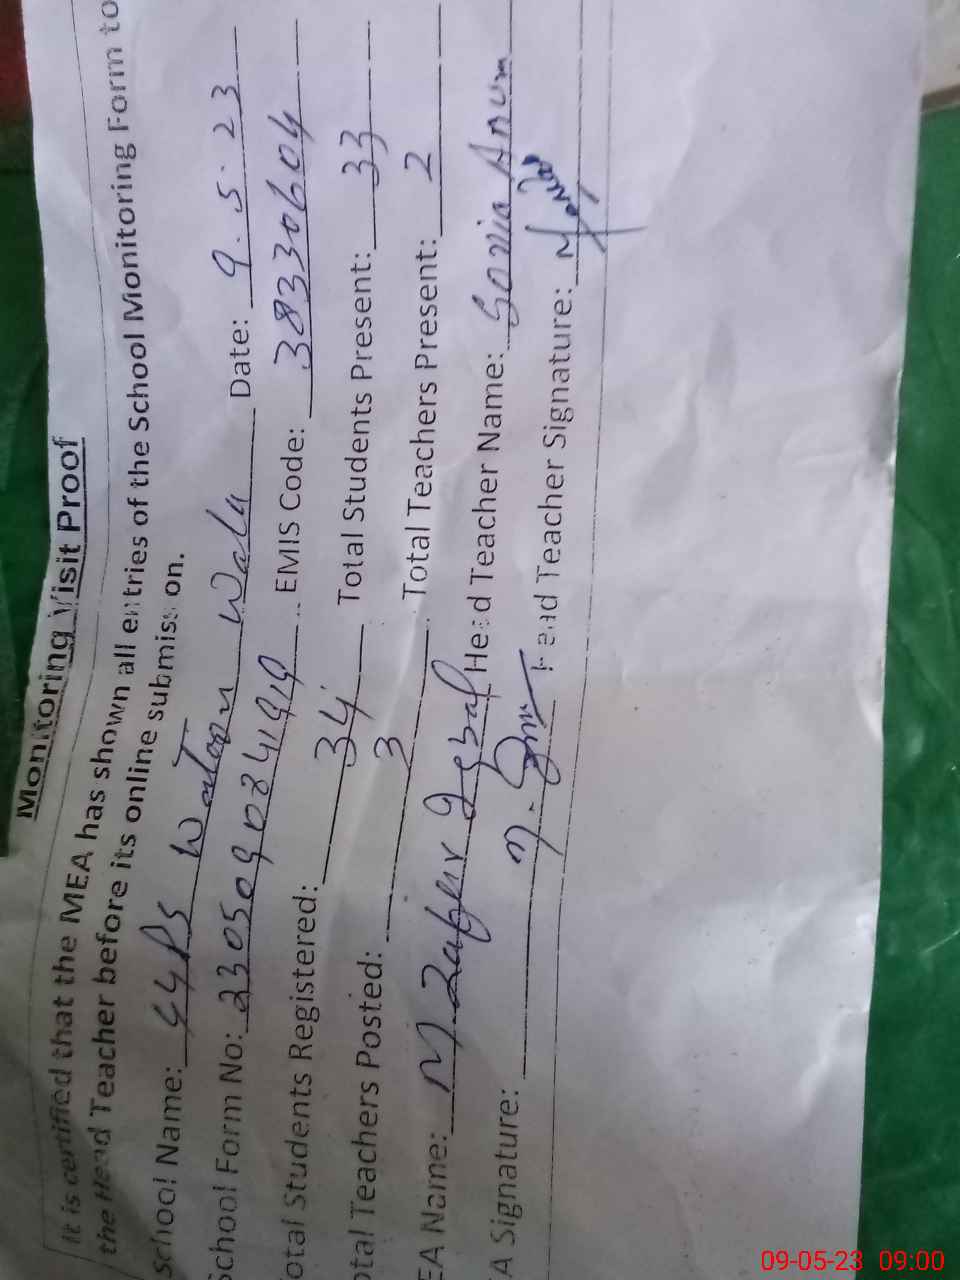 Monitoring Visit Proof
It is certified that the MEA has shown all entries of the School Monitoring Form to
the Head Teacher before its online submission.
School Name: GGPS Watoon Wala Date: 9.5.23
School Form No: EMIS Code: 38330604
otal Students Registered: 34 Total Students Present: 33
otal Teachers Posted: 3 Total Teachers Present: 2
EA Name: M Zafar Iqbal Head Teacher Name: Anum
A Signature: Head Teacher Signature:
09-05-23 09:00